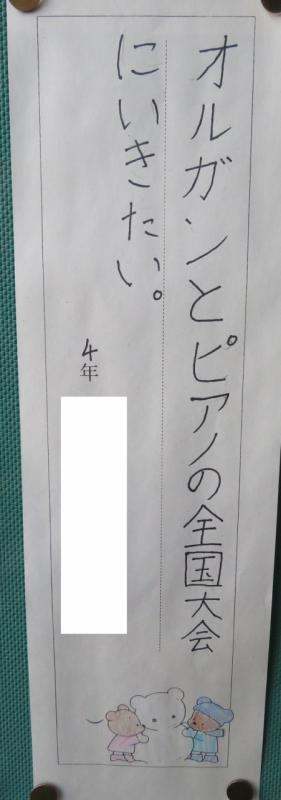 オルガンとピアノの全国大会
にいきたい。
4年